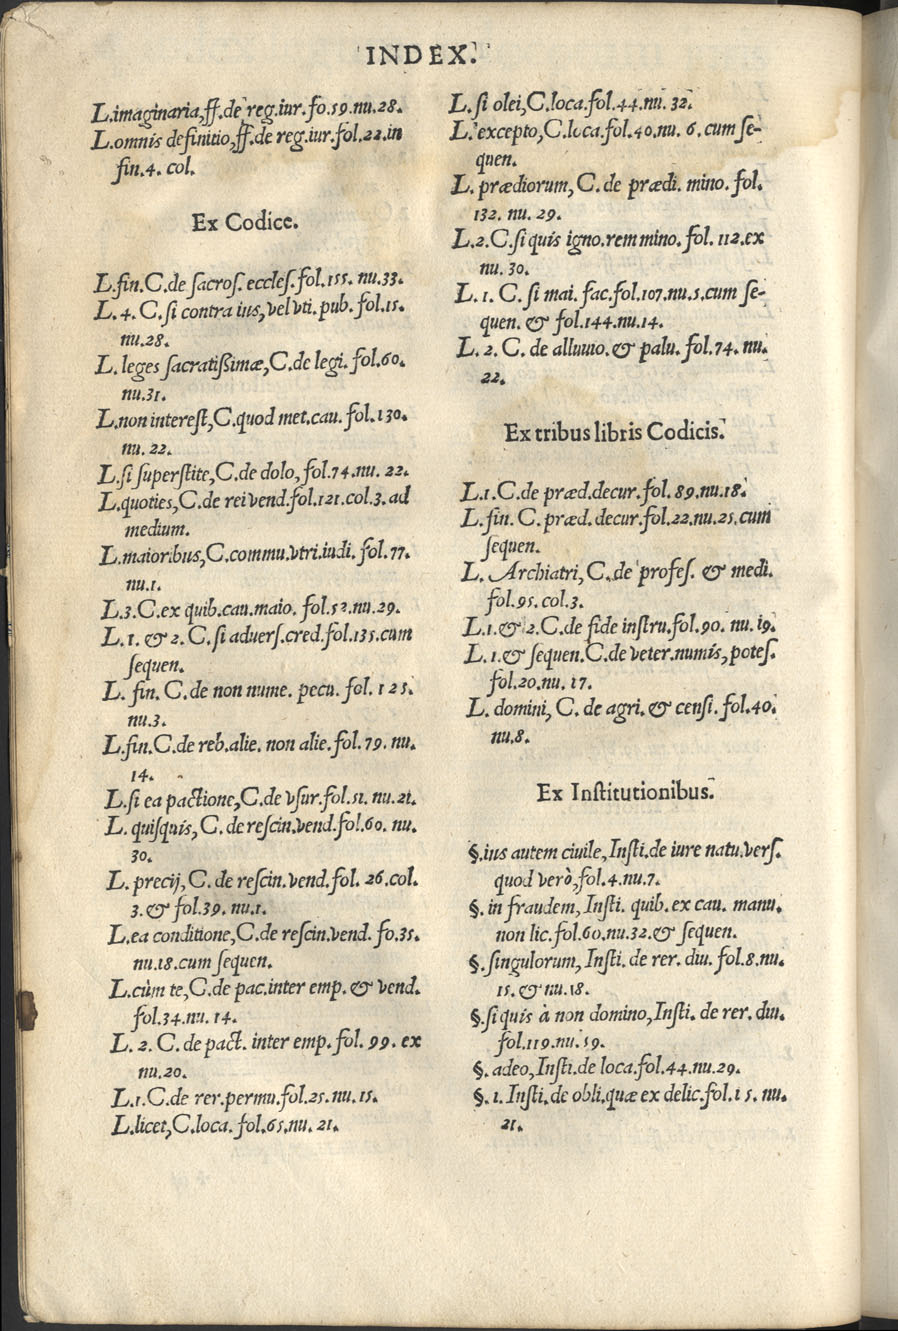 INDEX.
L.imaginaria,ff.de reg.iur.fo.59.nu.28.
L.omnis definitio,ff.de reg.iur.fol.22.in
fin.4. col.
Ex Codice.
L.fin.C.de ſacroſ. eccleſ.fol.155. nu.33.
L. 4. C. ſi contra ius, vel vti. pub. fol.15.
nu.28.
L. leges ſacratiſſimæ,C.de legi. fol.60.
nu.31.
L.non intereſt,C.quod met.cau. fol.130.
nu. 22.
L.ſi ſuperſtite,C.de dolo, fol.74.nu. 22.
L.quoties,C.de rei vend.fol.121.col.3. ad
medium.
L.maioribus,C.commu.vtri.iudi. fol.77.
nu.1.
L.3.C.ex quib.cau.maio. fol.52.nu.29.
L. 1. & 2. C. ſi aduerſ.cred.fol.135.cum
ſequen.
L. fin. C. de non nume. pecu. fol. 125.
nu.3.
L.fin.C.de reb.alie. non alie.fol.79. nu.
14.
L.ſi ea pactione,C.de vſur.fol.51. nu.21.
L. quiſquis, C. de reſcin.vend.fol.60. nu.
30.
L. precij, C. de reſcin.vend.fol. 26.col.
3.& fol.39. nu.1.
L.ea conditione,C.de reſcin.vend. fo.35.
nu.18.cum ſequen.
L.cùm te,C.de pac.inter emp. & vend.
fol.34.nu. 14.
L. 2. C. de pact. inter emp. fol. 99. ex
nu.20.
L.1.C.de rer.permu.fol.25.nu.15.
L.licet,C.loca. fol.65.nu. 21.
L. ſi olei,C.loca.fol.44.nu. 32.
L. excepto,C.loca.fol.40.nu. 6. cum ſe-
quen.
L. prædiorum, C. de prædi. mino. fol.
132. nu. 29.
L.2.C.ſi quis igno.rem mino. fol. 112.ex
nu. 30.
L. 1. C. ſi mai. fac.fol.107.nu.5.cum ſe-
quen. & fol.144.nu.14.
L. 2. C. de alluuio.& palu. fol.74. nu.
22.
Ex tribus libris Codicis.
L.1.C.de præd.decur.fol. 89.nu.18.
L. fin. C. præd. decur.fol.22.nu.25.cum
ſequen.
L. Archiatri, C. de profeſ. & medi.
fol.95. col.3.
L.1.& 2.C.de fide inſtru.fol.90. nu. 19.
L. 1.& ſequen.C.de veter.numis, poteſ.
fol.20.nu. 17.
L. domini, C. de agri. & cenſi. fol.40.
nu.8.
Ex Inſtitutionibus.
§.ius autem ciuile, Inſti.de iure natu.verſ.
quod verò,fol.4.nu.7.
§. in fraudem, Inſti. quib. ex cau. manu.
non lic.fol.60.nu.32.& ſequen.
§. ſingulorum, Inſti. de rer. diu. fol.8.nu.
15. & nu.18.
§.ſi quis à non domino,Inſti. de rer. diu.
fol.119.nu.59.
§. adeo, Inſti.de loca.fol.44.nu.29.
§. 1. Inſti. de obli.quæ ex delic.fol.15. nu.
21.